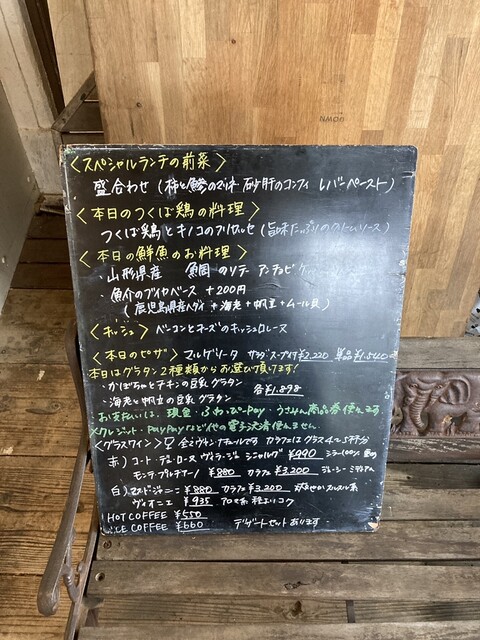 NMOU
<スペシャルランチの前菜>
盛合わせ (柿と鯵のマリネ 砂肝のコンフィ レバーペースト)
<本日のつくば鶏の料理>
つくば鶏とキノコのフリカッセ (旨味たっぷりのクリームソース)
<本日の鮮魚のお料理>
・山形県産 のソテー アンチョビ
・魚介のブイヤベース +200円
(鹿児島県産 + 海老 + 帆立 + ムール貝)
<キッシュ> ベーコンとネギのキッシュロレーヌ
<本日のピザ> マルゲリータ サラダ・スープ付¥2.220 単品¥1.540
本日はグラタン2種類からお選び頂けます!
・かぼちゃとチキンの豆乳グラタン
・海老と帆立の豆乳グラタン 各¥1.898
お支払いは、現金・ふわっぴーPay・うさけん商品券使えます
×クレジット・PayPayなど他の電子決済使えません。
<グラスワイン> 全てヴァンナチュールです カラフェはグラス4~5杯分
赤) コート・デュ・ローヌ ヴィラージュ シニャルグ ¥990 シラー100%
モンテプルチアーノ ¥880 カラフェ ¥3.200 ジューシー ミディアム
白) ¥880 カラフェ ¥3.200
ヴィオニエ ¥935 アロマ系 程よいコク
HOT COFFEE ¥550
ICE COFFEE ¥660 デザートセットあります